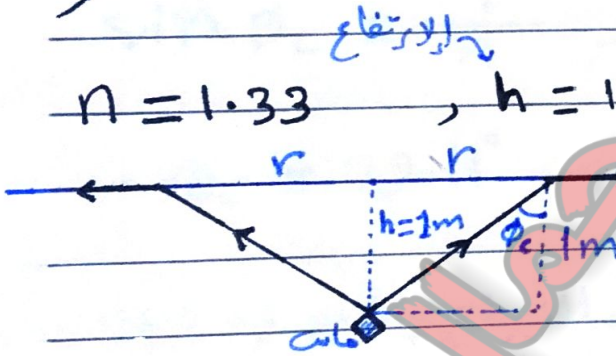 الارتفاع
n = 1.33 , h = 1
r r
h=1m φc 1m
ماسة